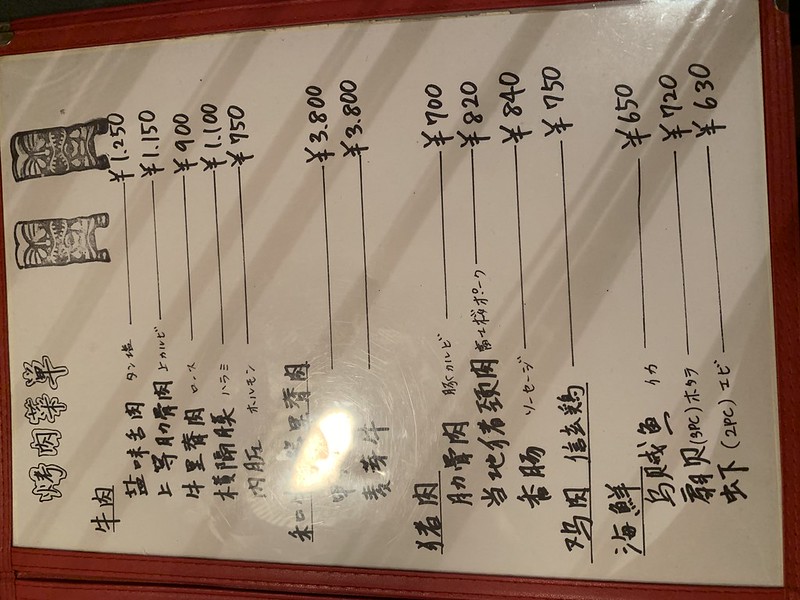 烤肉菜単
牛肉
盐味舌肉 タン塩 ¥1.250
上等肋骨肉 上カルビ ¥1.150
牛里脊肉 ロース ¥900
横隔膜 ハラミ ¥1.100
内脏 ホルモン ¥750
和牛 里脊肉 ¥3.800
麦芽牛 ¥3.800
猪肉
肋骨肉 豚カルビ ¥700
当地猪颈肉 富士桜ポーク ¥820
香肠 ソーセージ ¥840
鸡肉 信玄鶏 ¥750
海鮮
乌贼鱼 イカ ¥650
扇贝(3PC)ホタテ ¥720
虾(2PC)エビ ¥630